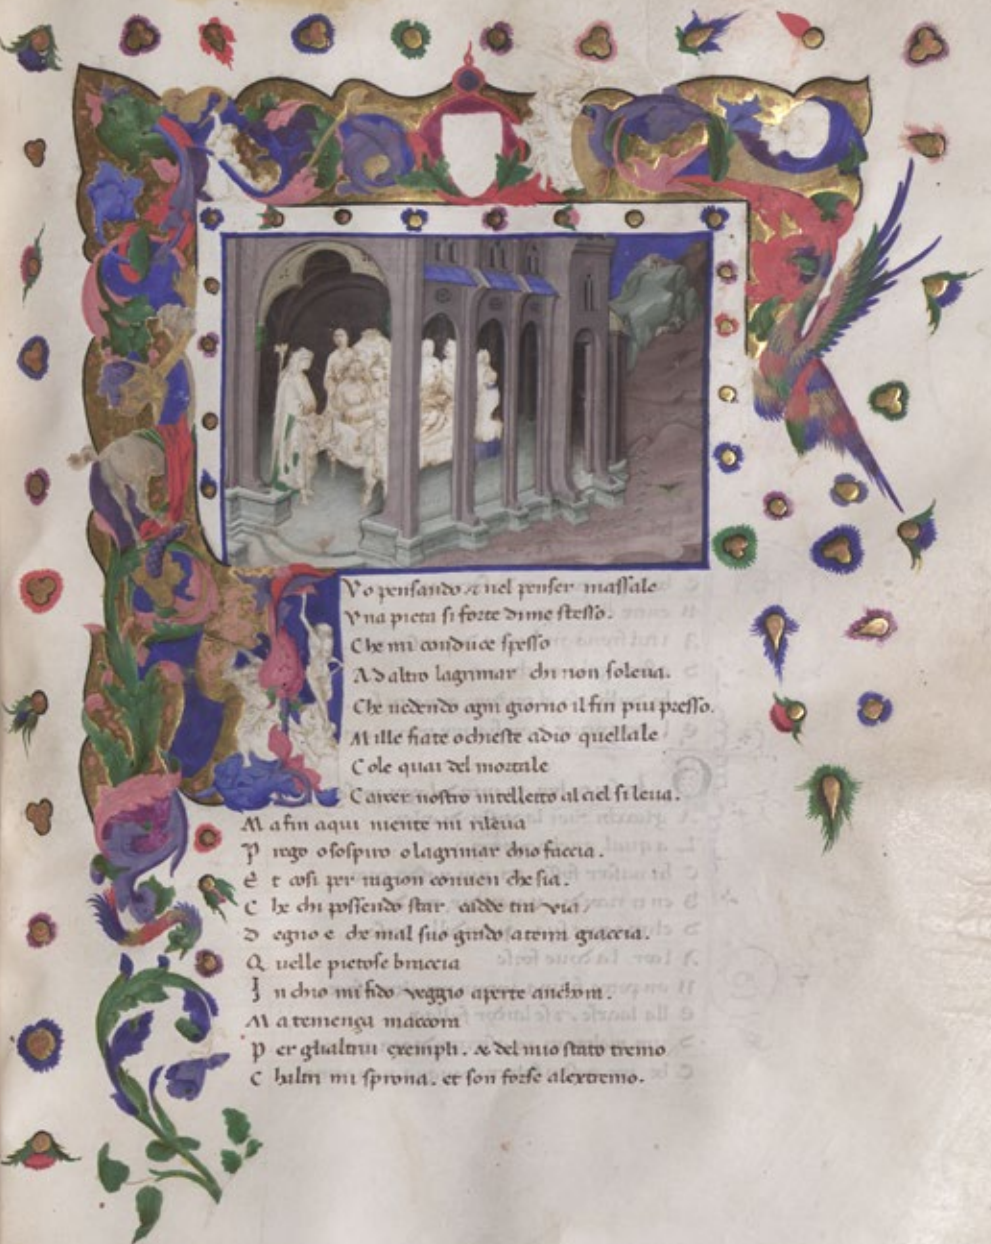 Vo pensando & nel penser massale
Vna pieta si forte dime stesso.
Che mi conduce spesso
Ad altro lagrimar chi non soleua.
Che uedendo ogni giorno il fin piu presso.
Mille fiate ochieste adio quellale
Cole quai del mortale
Carcer nostro intelletto al ciel si leua.
Ma fin aqui niente mi rileua
Prego o sospiro o lagrimar chio faccia.
Et cosi per ragion conuen che sia.
Che chi possendo star. cadde tra via.
Degno e che mal suo grado a terra giaccia.
Quelle pietose braccia
In chio mi fido veggio aperte anchora.
Ma temenza maccora
Per glialtrui exempli. & del mio stato tremo
Chaltri mi sprona. et son forse alextremo.